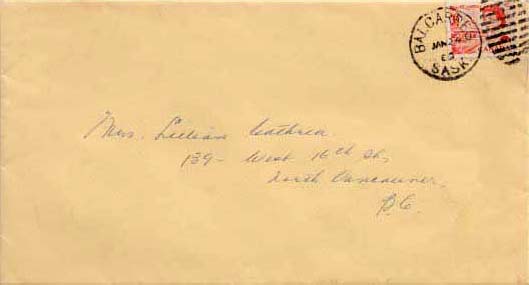 BALCARRES
JAN 24
SASK
Mrs. Lillian Cathrea
139- West 16th St,
North Vancouver,
B.C.